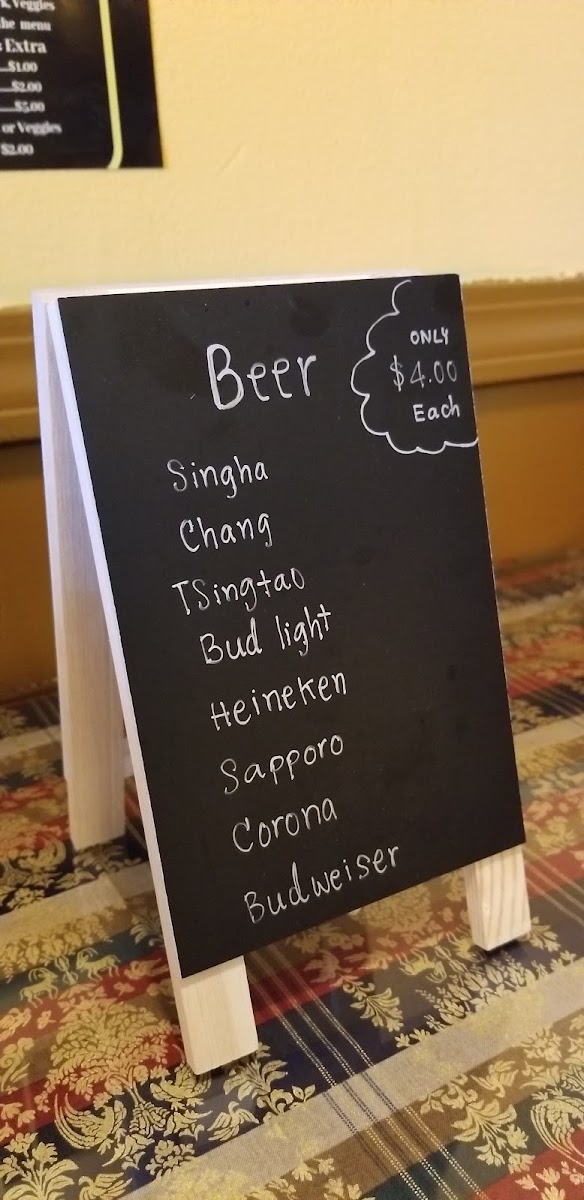 Veggies
the menu
Extra
$1.00
$2.00
$5.00
or Veggies
$2.00
Beer
ONLY
$4.00
Each
Singha
Chang
TSingtao
Bud light
Heineken
Sapporo
Corona
Budweiser